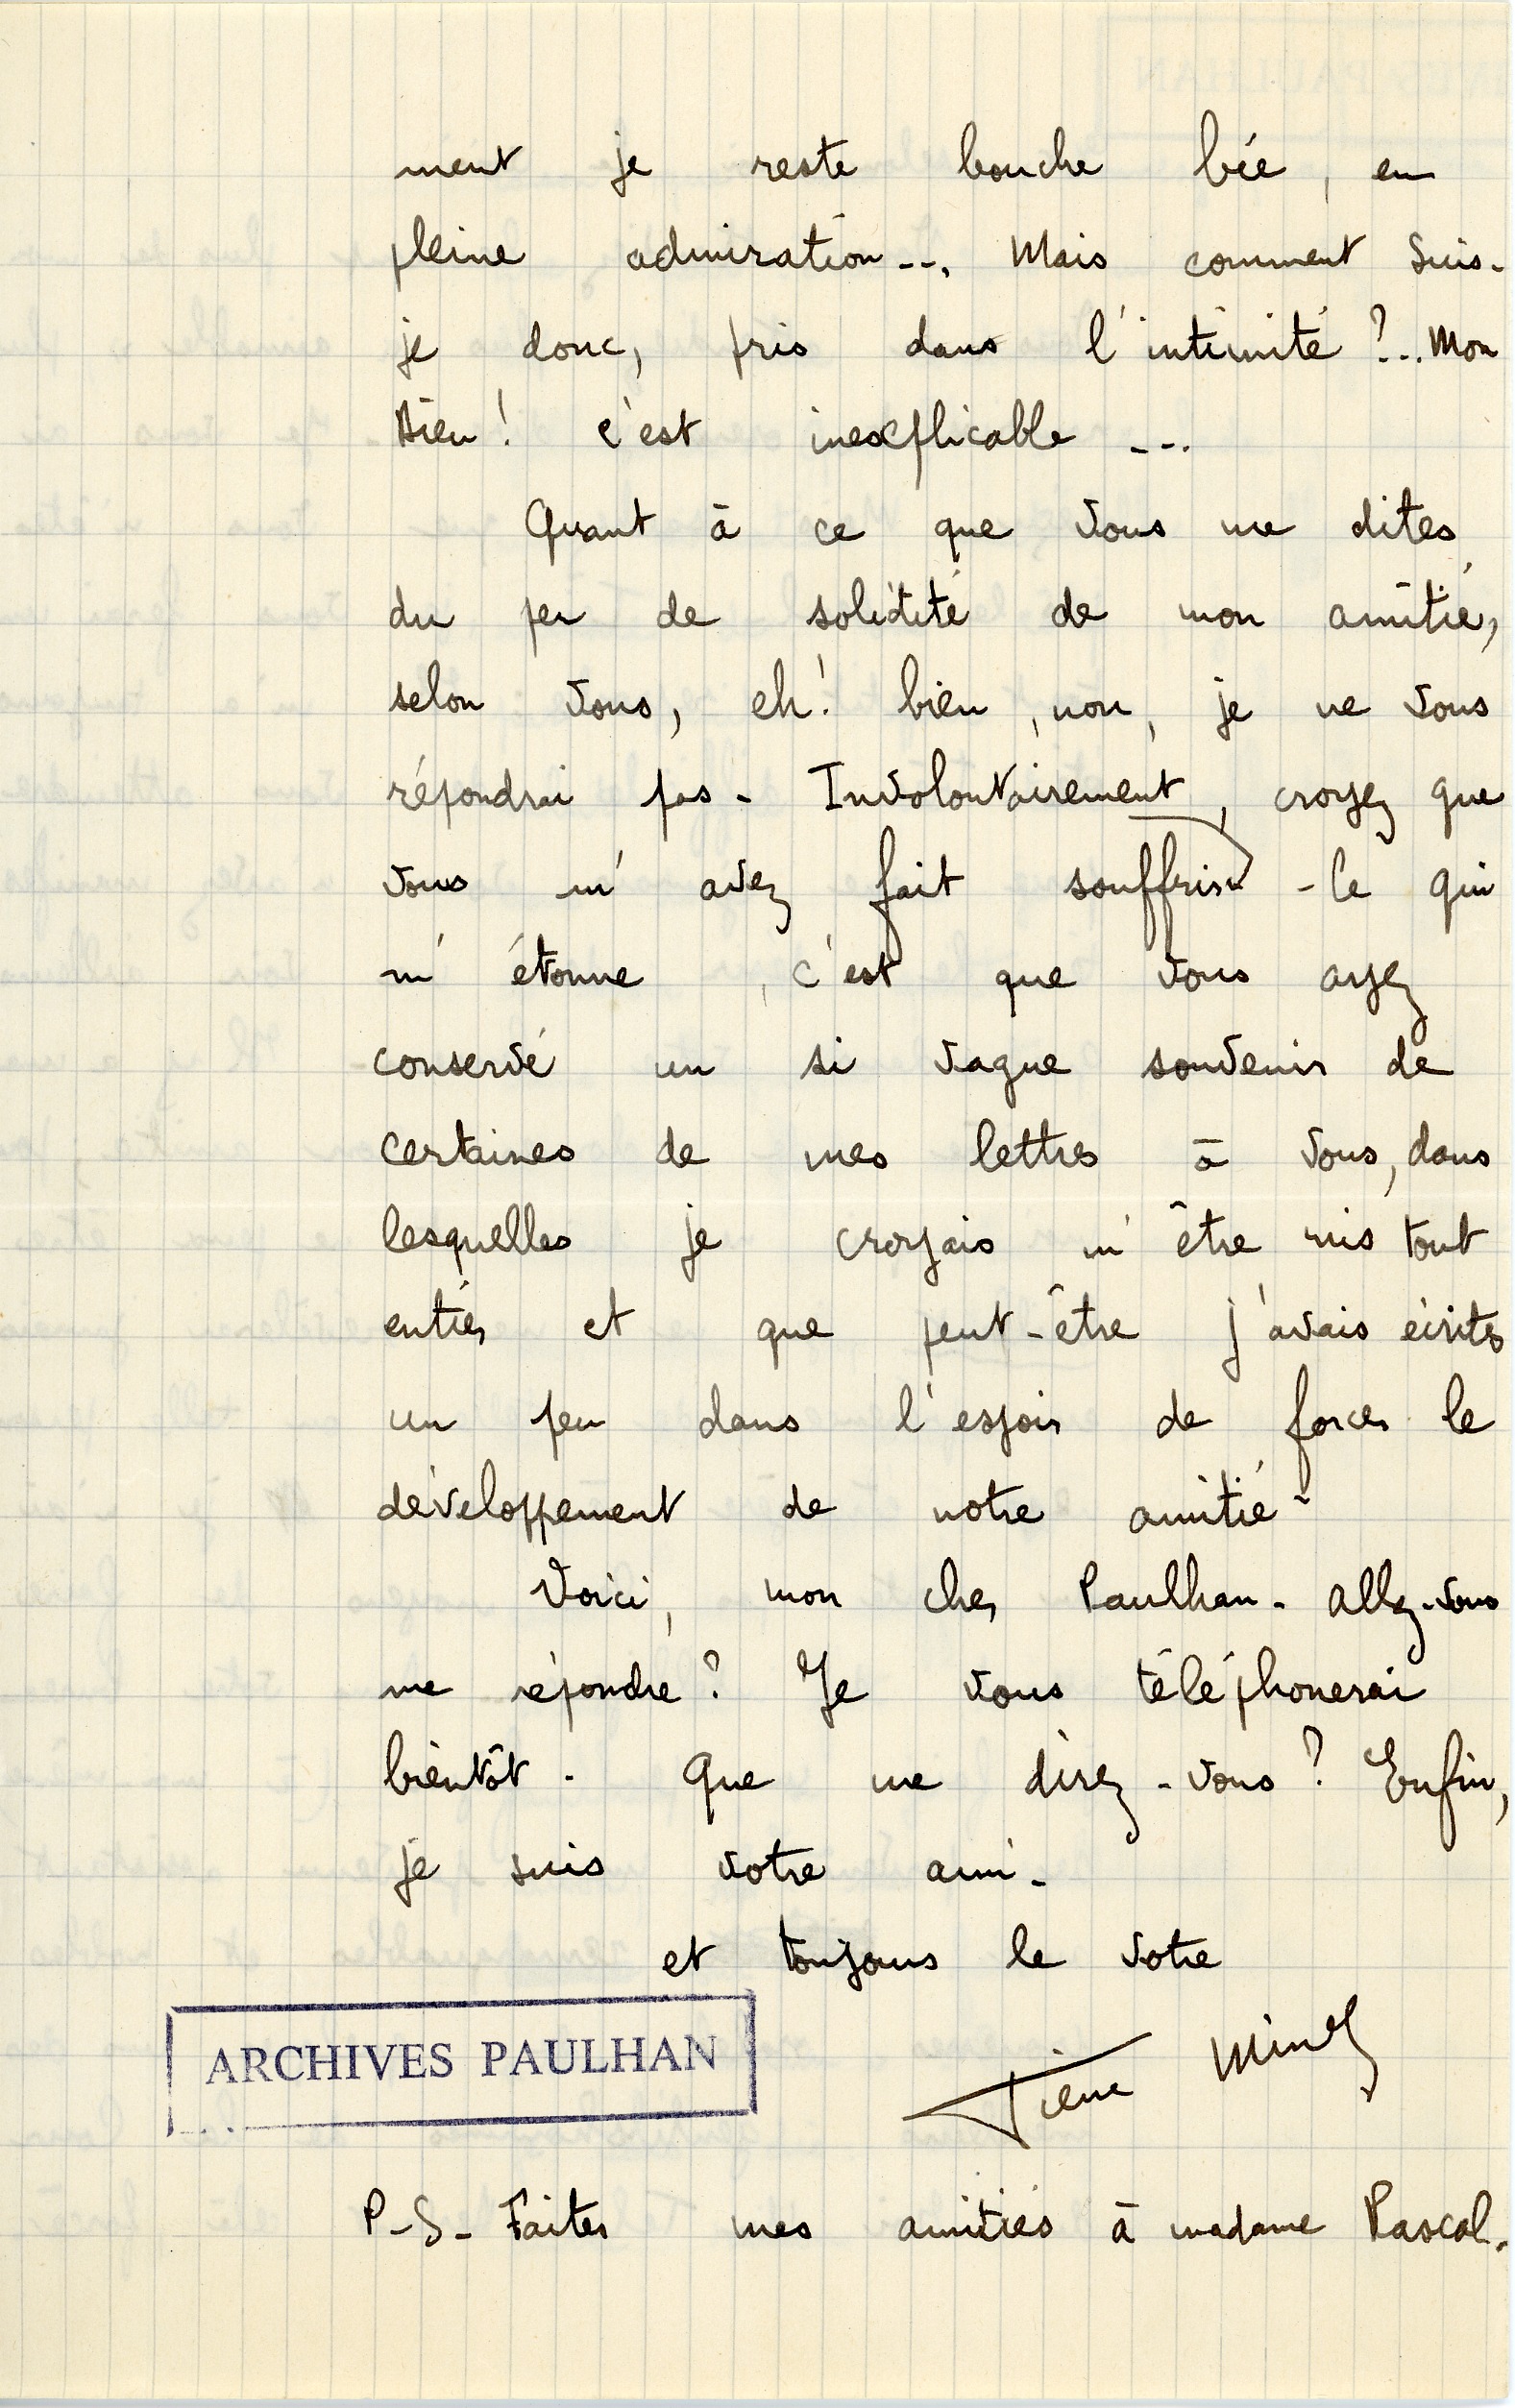 ment je reste bouche bée, en
pleine admiration... Mais comment suis-
je donc, pris dans l'intimité ?... Mon
Dieu ! c'est inexplicable ...
Quant à ce que vous me dites
du peu de solidité de mon amitié,
selon vous, eh ! bien, non, je ne vous
répondrai pas - Involontairement, croyez que
vous m'avez fait souffrir - Ce qui
m'étonne, c'est que vous ayez
conservé un si vague souvenir de
certaines de mes lettres à vous, dans
lesquelles je croyais m'être mis tout
entier et que peut-être j'avais écrites
un peu dans l'espoir de forcer le
développement de notre amitié -
Voici, mon cher Paulhan - Allez-vous
me répondre ? Je vous téléphonerai
bientôt - Que me direz-vous ? Enfin,
je suis votre ami -
et toujours le votre
Pierre Minet
ARCHIVES PAULHAN
P-S- Faites mes amitiés à madame Pascal.